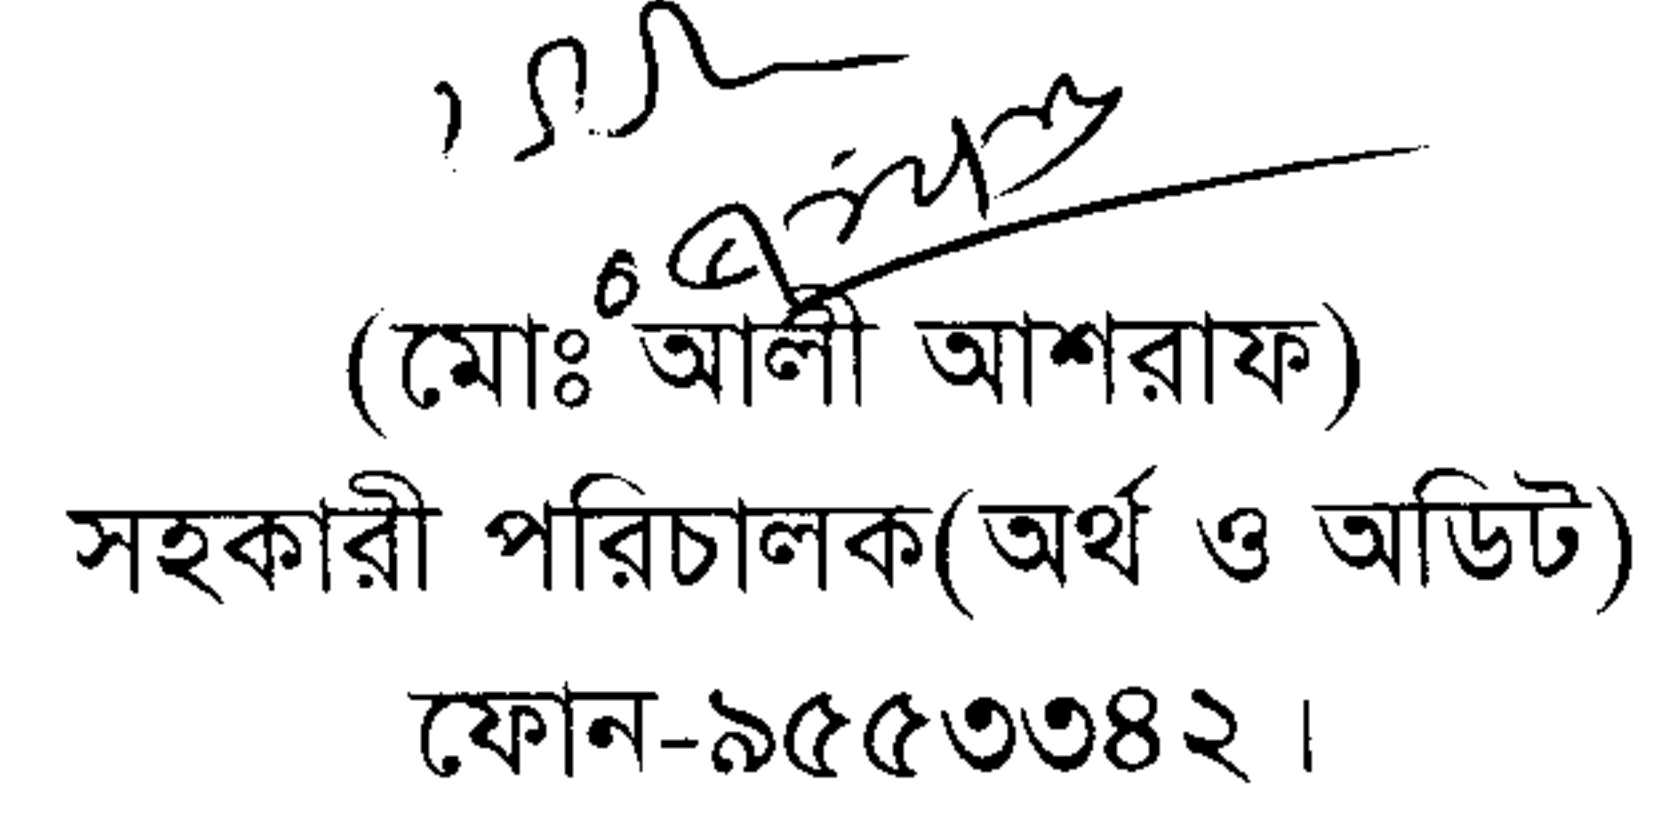 (মোঃ আলী আশরাফ)
সহকারী পরিচালক(অর্থ ও অডিট)
ফোন-৯৫৫৩৩৪২।